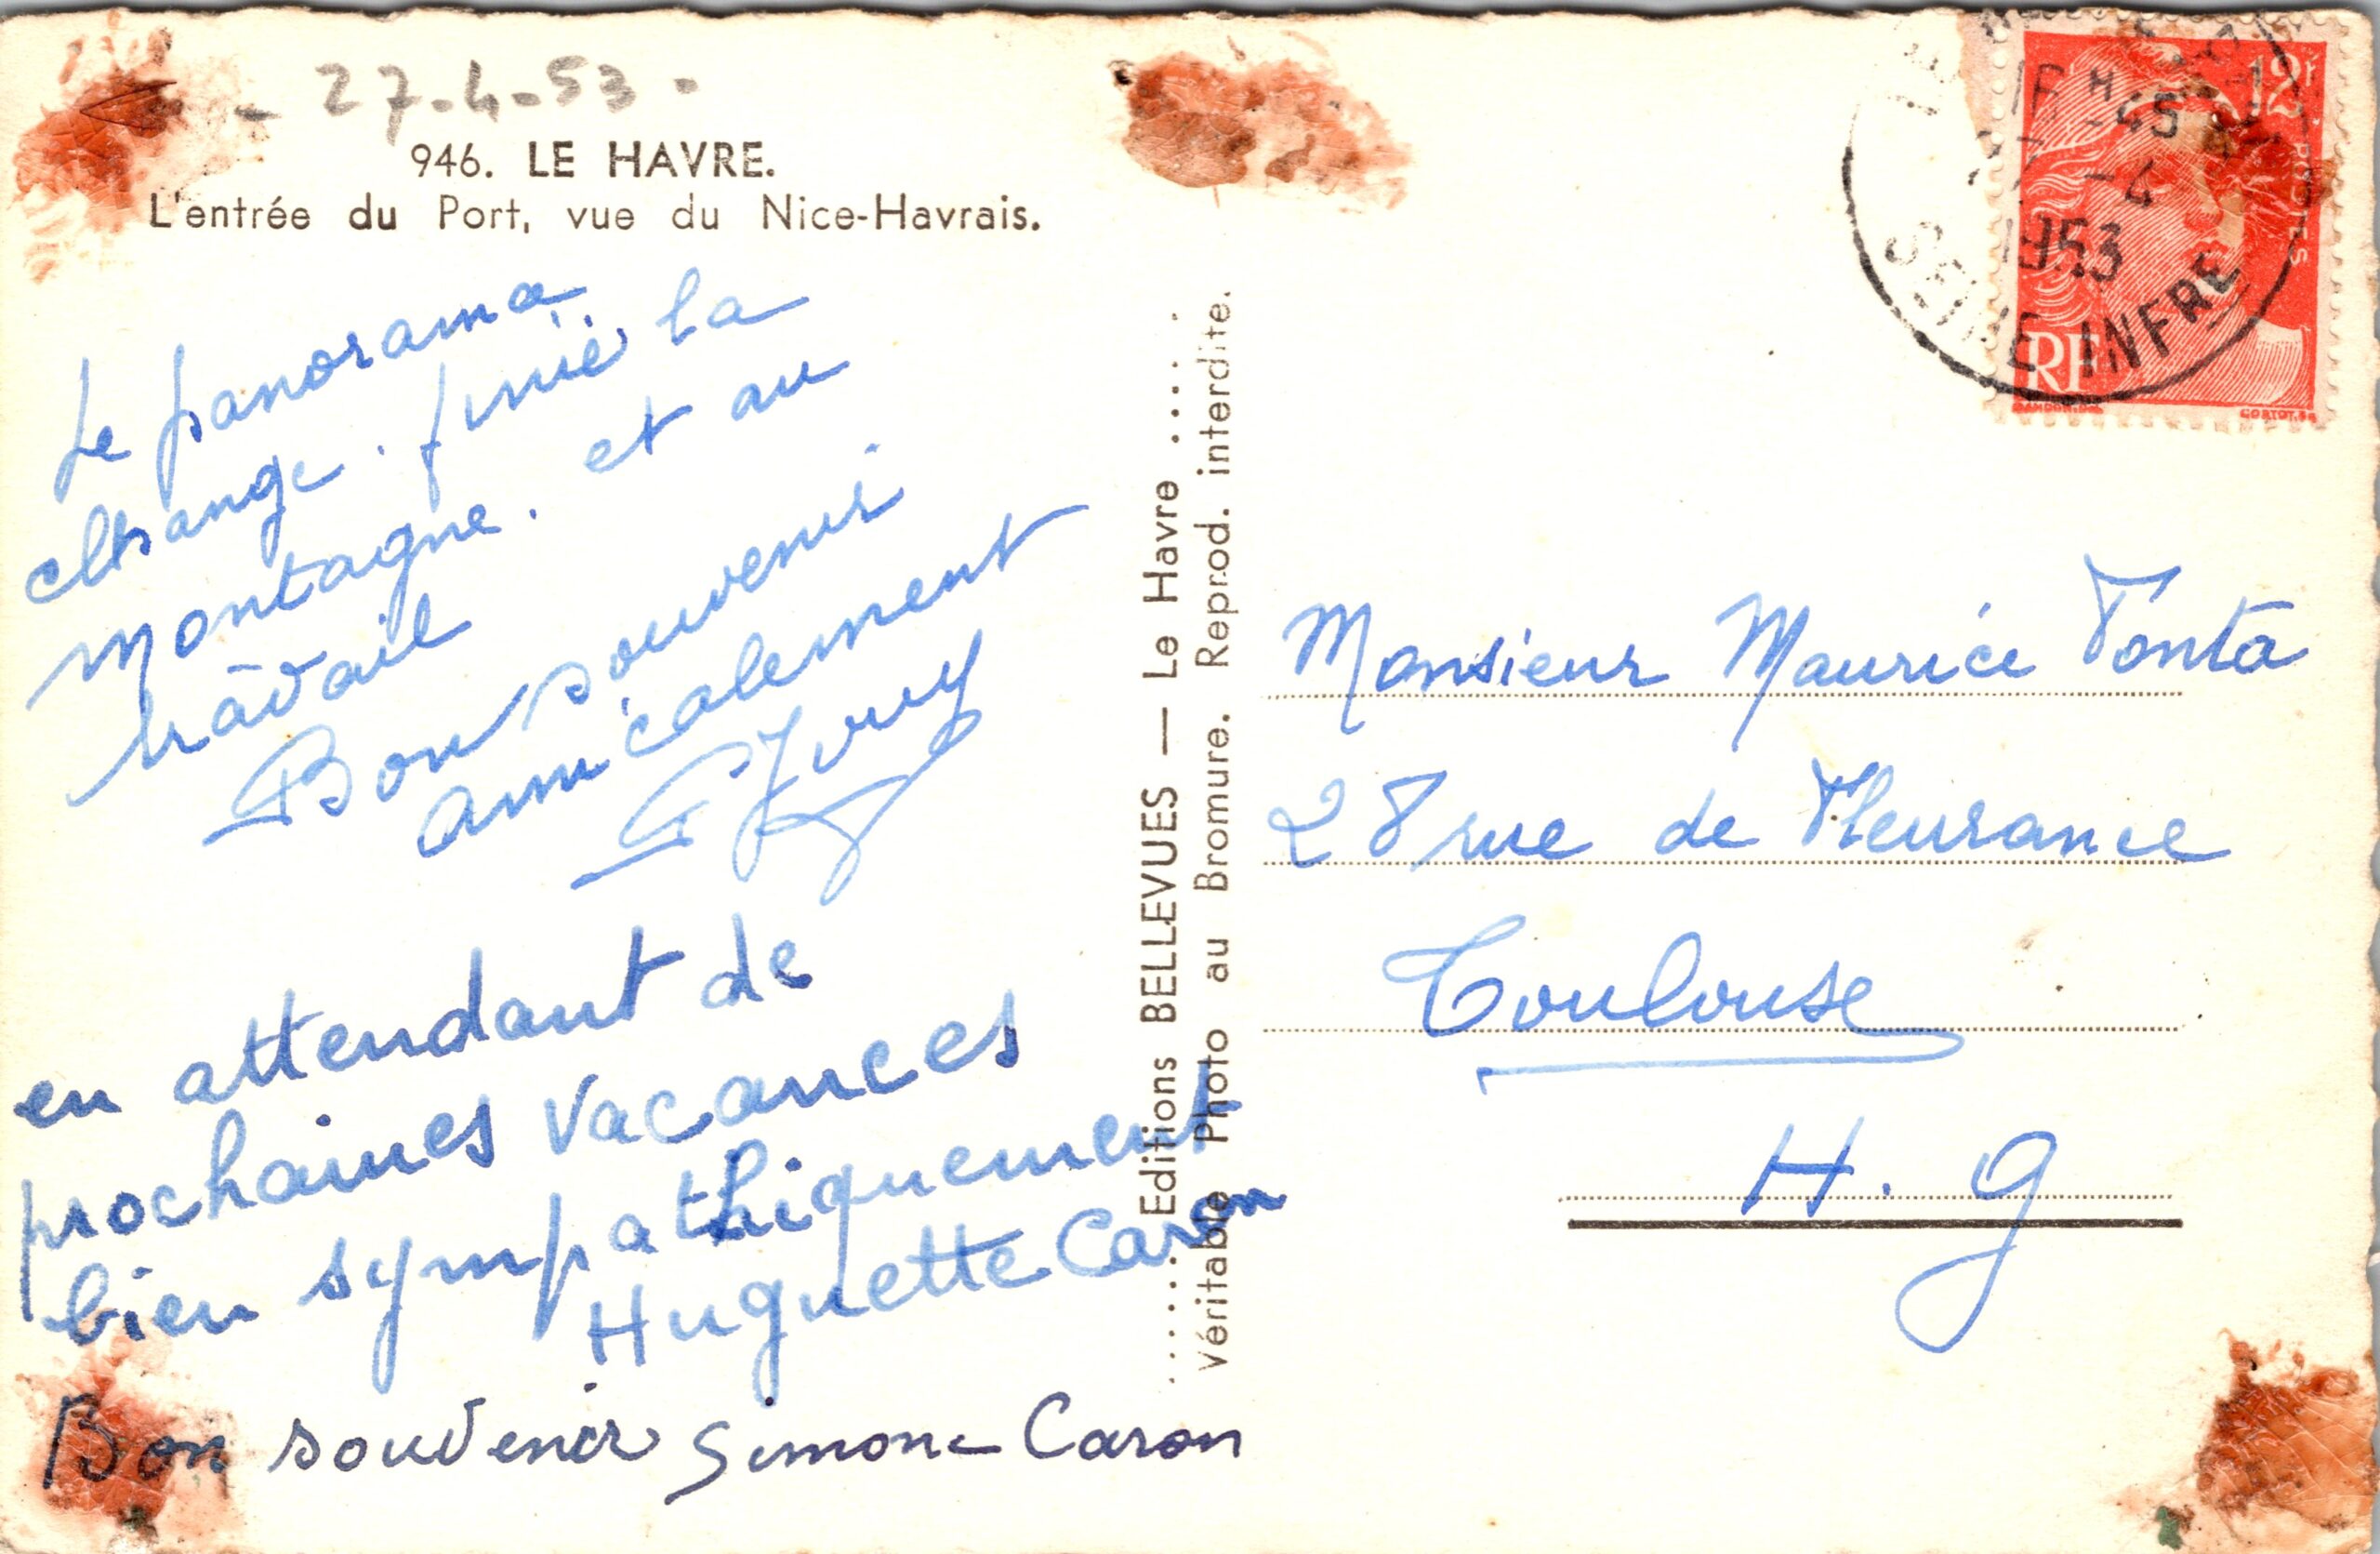 - 27-4-53 -
946. LE HAVRE.
L'entrée du Port, vue du Nice-Havrais.
Le panorama
change . finie la
montagne . et au
travail
Bon souvenir
amicalement
en attendant de
prochaines vacances
bien sympathiquement
Huguette Caron
Bon souvenir Simone Caron
Editions BELLEVUES — Le Havre
Véritable Photo au Bromure. Reprod. interdite.
12F
POSTES
RF
GANDON.DEL
CORTOT.SC
16H45
27-4
1953
SEINE INFRE
Monsieur Maurice Tonta
28 rue de Fleurance
Toulouse
H. G